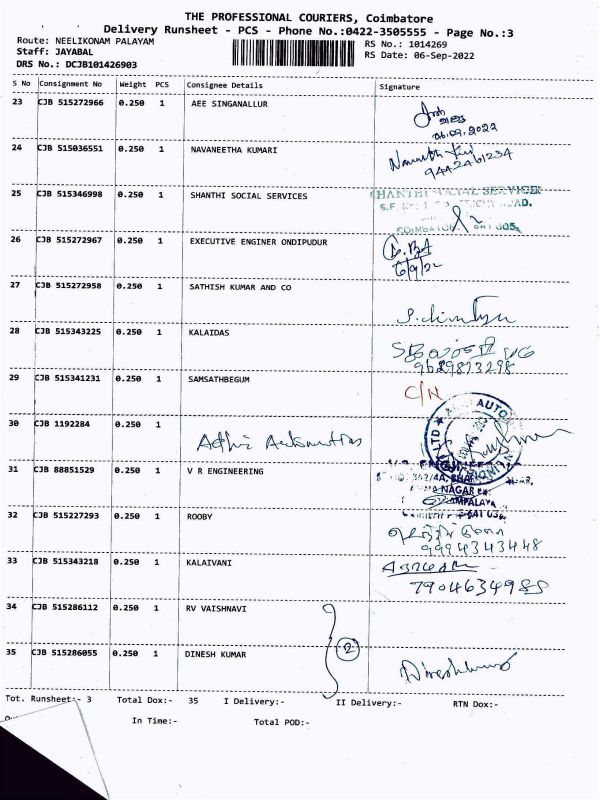 THE PROFESSIONAL COURIERS, Coimbatore
Delivery Runsheet - PCS - Phone No.:0422-3505555 - Page No.:3
Route: NEELIKONAM PALAYAM
Staff: JAYABAL
DRS No.: DCJB101426903
RS No.: 1014269
RS Date: 06-Sep-2022
S No Consignment No Weight PCS Consignee Details Signature
23 CJB 515272966 0.250 1 AEE SINGANALLUR
06.09.2022
24 CJB 515036551 0.250 1 NAVANEETHA KUMARI
9442461234
25 CJB 515346998 0.250 1 SHANTHI SOCIAL SERVICES
SHANTHI SOCIAL SERVICES
26 CJB 515272967 0.250 1 EXECUTIVE ENGINER ONDIPUDUR
6/9/22
27 CJB 515272958 0.250 1 SATHISH KUMAR AND CO
28 CJB 515343225 0.250 1 KALAIDAS
9629873298
29 CJB 515341231 0.250 1 SAMSATHBEGUM
C/N
30 CJB 1192284 0.250 1
Adhi Automation
31 CJB 88851529 0.250 1 V R ENGINEERING
32 CJB 515227293 0.250 1 ROOBY
9994343448
33 CJB 515343218 0.250 1 KALAIVANI
34 CJB 515286112 0.250 1 RV VAISHNAVI
2
35 CJB 515286055 0.250 1 DINESH KUMAR
Dineshkumar
Tot. Runsheet:- 3 Total Dox:- 35 I Delivery:- II Delivery:- RTN Dox:-
In Time:- Total POD:-